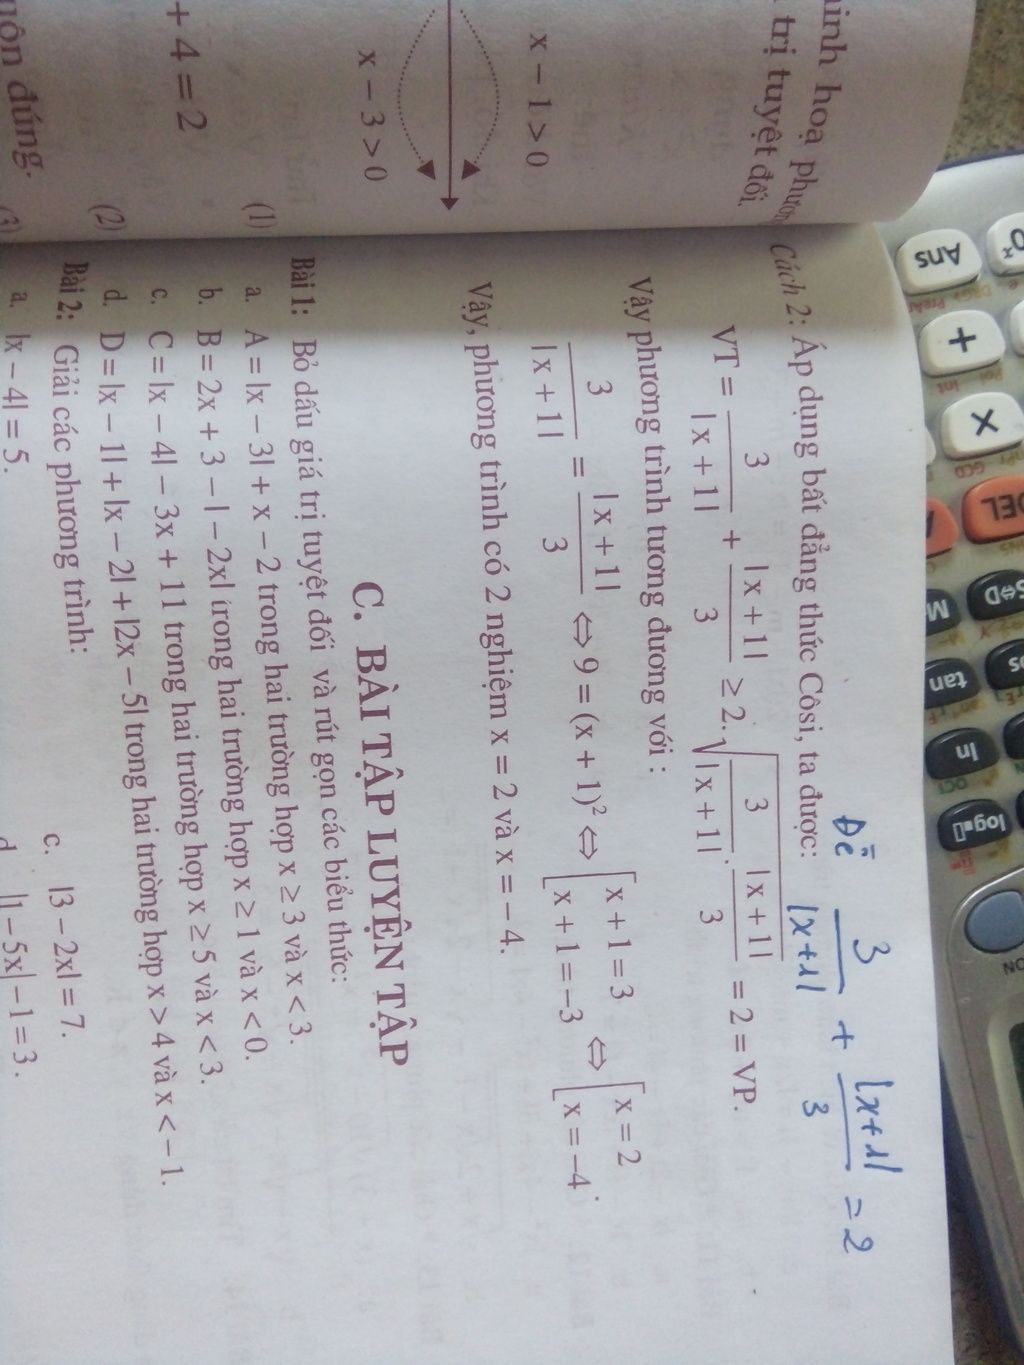 inh hoạ phươn
trị tuyệt đối.
x – 1 > 0
x – 3 > 0
(1)
+ 4 = 2
(2)
uôn đúng.
(3)
Đề 3/|x+1| + |x+1|/3 = 2
Cách 2: Áp dụng bất đẳng thức Côsi, ta được:
VT = 3/|x + 1| + |x + 1|/3 ≥ 2.√(3/|x + 1| . |x + 1|/3) = 2 = VP.
Vậy phương trình tương đương với :
3/|x + 1| = |x + 1|/3 ⇔ 9 = (x + 1)² ⇔ [x + 1 = 3 x + 1 = –3 ⇔ [x = 2 x = –4 .
Vậy, phương trình có 2 nghiệm x = 2 và x = – 4.
C. BÀI TẬP LUYỆN TẬP
Bài 1: Bỏ dấu giá trị tuyệt đối và rút gọn các biểu thức:
a. A = |x – 3| + x – 2 trong hai trường hợp x ≥ 3 và x < 3.
b. B = 2x + 3 – | – 2x| trong hai trường hợp x ≥ 1 và x < 0.
c. C = |x – 4| – 3x + 11 trong hai trường hợp x ≥ 5 và x < 3.
d. D = |x – 1| + |x – 2| + |2x – 5| trong hai trường hợp x > 4 và x < – 1.
Bài 2: Giải các phương trình:
a. |x – 4| = 5.
c. |3 – 2x| = 7.
d |1 – 5x| – 1 = 3.
Ans
+
×
DEL
S⇔D
M
tan
ln
log
ON